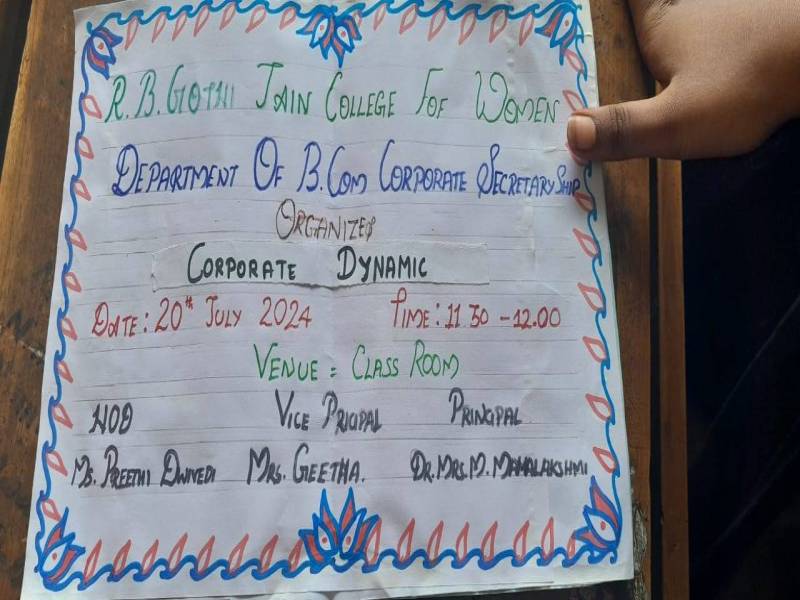 R.B.GOTHI JAIN COLLEGE FOF WOMEN
DEPARTMENT OF B.COM CORPORATE SECRETARYSHIP
ORGANIZES
CORPORATE DYNAMIC
DATE: 20th JULY 2024 TIME: 11 30 -12.00
VENUE = CLASS ROOM
HOD VICE PRICIPAL PRINCIPAL
Ms. PREETHI DWIVEDI MRS. GEETHA. DR. MRS. M. MAHALAKSHMI